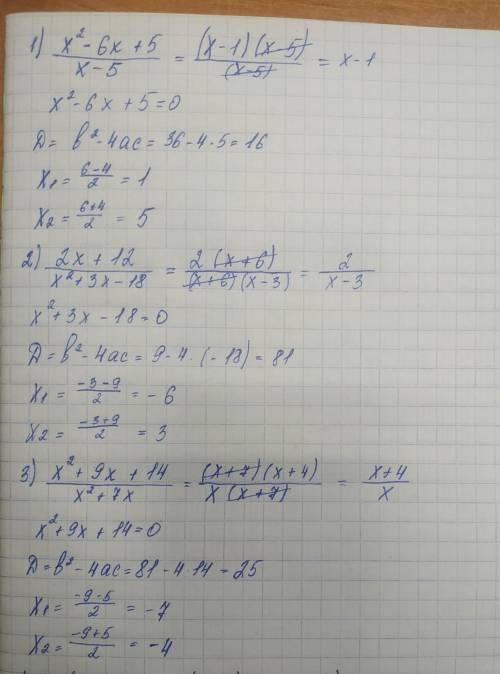 1) (x² - 6x + 5)/(x - 5) = ((x - 1)(x - 5))/((x - 5)) = x - 1
x² - 6x + 5 = 0
D = b² - 4ac = 36 - 4 · 5 = 16
x₁ = (6 - 4)/2 = 1
x₂ = (6 + 4)/2 = 5
2) (2x + 12)/(x² + 3x - 18) = (2(x + 6))/((x + 6)(x - 3)) = 2/(x - 3)
x² + 3x - 18 = 0
D = b² - 4ac = 9 - 4 · (-18) = 81
x₁ = (-3 - 9)/2 = -6
x₂ = (-3 + 9)/2 = 3
3) (x² + 9x + 14)/(x² + 7x) = ((x + 7)(x + 4))/(x(x + 7)) = (x + 4)/x
x² + 9x + 14 = 0
D = b² - 4ac = 81 - 4 · 14 = 25
x₁ = (-9 - 5)/2 = -7
x₂ = (-9 + 5)/2 = -4